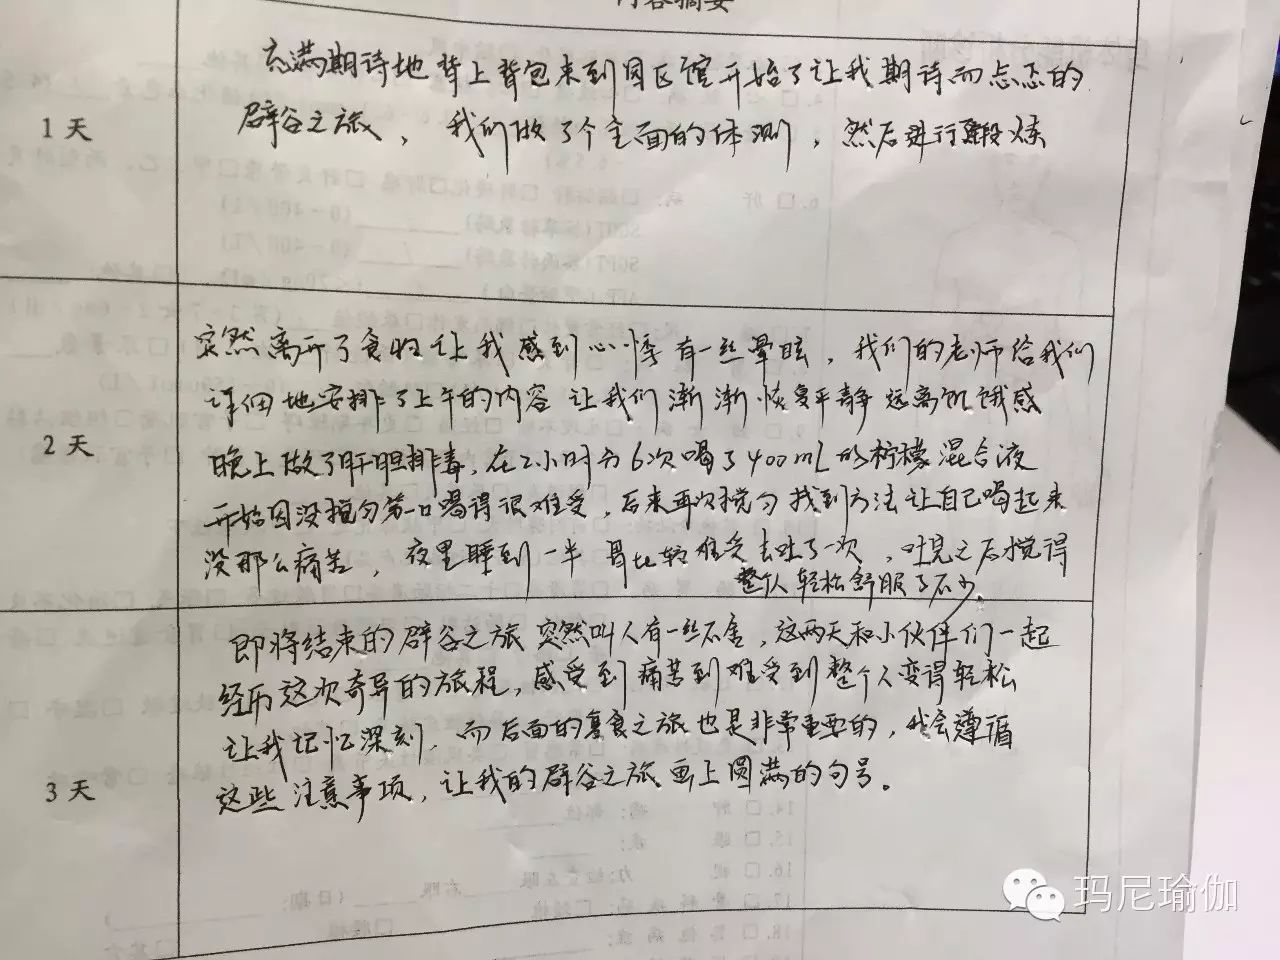 内容摘要
1 天
充满期待地背上背包来到园区馆开始了让我期待而忐忑的
辟谷之旅，我们做了个全面的体测，然后进行锻炼
2 天
突然离开了食物让我感到心悸有一丝晕眩，我们的老师给我们
详细地安排了上午的内容 让我们渐渐恢复平静 远离饥饿感
晚上做了肝胆排毒，在2小时分6次喝了400mL的柠檬混合液
开始因没搅匀第一口喝得很难受，后来再次搅匀 找到方法让自己喝起来
没那么痛苦，夜里睡到一半 胃比较难受去吐了一次，吐完之后觉得
整个人轻松舒服了不少。
3 天
即将结束的辟谷之旅 突然叫人有一丝不舍，这两天和小伙伴们一起
经历这次奇异的旅程，感受到痛苦到难受到整个人变得轻松
让我记忆深刻，而后面的复食之旅也是非常重要的，我会遵循
这些注意事项，让我的辟谷之旅画上圆满的句号。
玛尼瑜伽